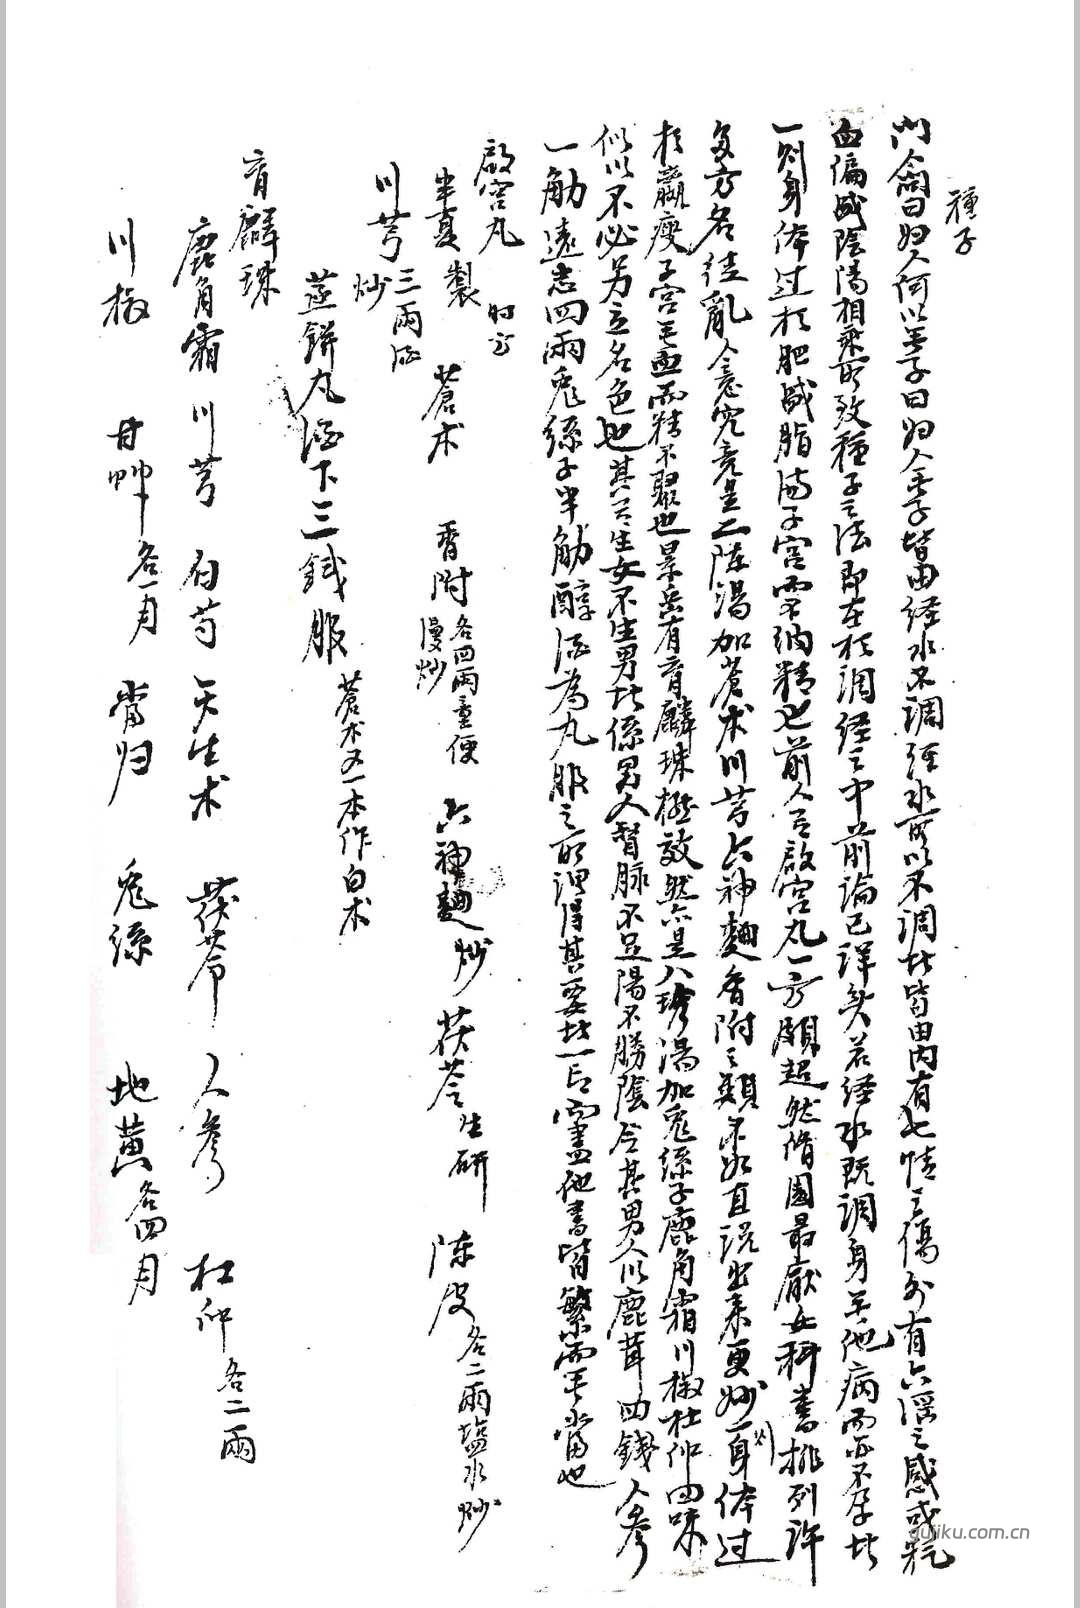 種子
門人問曰妇人何以無子曰妇人無子皆由经水不調经水所以不調者皆由内有七情之傷外有六淫之感或氣
血偏盛陰陽相乘所致種子之法即在於調经之中前論已详矣若经水既調身無他病而亦不孕者
一则身体过於肥盛脂满子宫而不纳精也前人有啟宫丸一方頗超然脩園最厭女科書排列许
多方名徒亂人意究竟是二陈湯加蒼术川芎六神麯香附之類不如直说出来更妙一则身体过
於羸瘦子宫無血而精不聚也景岳有育麟珠极效然亦是八珍湯加兎絲子鹿角霜川椒杜仲四味
似以不必另立名色也其有生女不生男者係男人督脉不足陽不勝陰令其男人以鹿茸四錢人參
一觔遠志四兩兎絲子半觔醇酒為丸服之所謂得其要者一言而盡他書皆繁而無當也
啟宫丸
半夏製 蒼术 香附各四兩童便漫炒 六神麯炒 茯苓生研 陈皮各二兩塩水炒
川芎三兩酒炒
蒸餅丸酒下三錢服 蒼术又一本作白术
育麟珠
鹿角霜 川芎 白芍 天生术 茯苓 人參 杜仲各二兩
川椒 甘艸各一月 當归 兎絲 地黄各四月
gujiku.com.cn